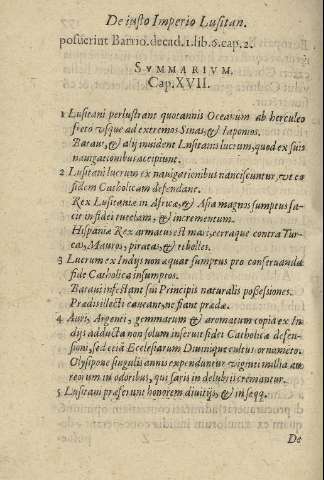 De iusto Imperio Lusitan.
posuerint Barrio.decad.1.lib.6.cap.2.
SVMMARIVM.
Cap.XVII.
1 Lusitani perlustrant quotannis Oceanum ab herculeo
freto vsque ad extremos Sinas, & Iaponios.
Bataui, & alij inuident Lusitanis lucrum, quod ex suis
nauigationibus accipiunt.
2 Lusitani lucrum ex nauigationibus nanciscuntur, vt
fidem Catholicam defendant.
Rex Lusitaniæ in Africæ, & Asia magnos sumptus fa-
cit in fidei tutelam, & incrementum.
Hispaniæ Rex armatus est mari, terraque contra Tur-
cas, Mauros, piratas, & rebelles.
3 Lucrum ex Indijs non æquat sumptus pro conseruanda
fide Catholica insumptos.
Bataui infestant sui Principis naturalis possessiones.
Præda illecti caueant, ne fiant prædæ.
4 Auri, Argenti, gemmarum & aromatum copia ex In
dijs adducta non solum inseruit fidei Catholicæ defen-
sioni, sed etiã Ecclesiarum Diuinique cultus ornamẽto.
Olysipone singulis annis expenduntur viginti millia au
reorum in odoribus, qui sacris in delubris cremantur.
5 Lusitani præferunt honorem diuitijs, & inseqq.
De